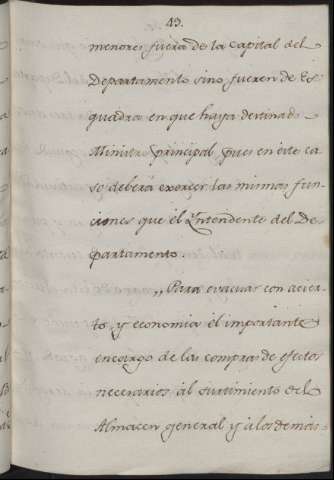 43.
menores fuera de la Capital del
Departamento sino fueren de Es
quadra en que haya destinado
Ministro principal pues en este ca
so deberá exercer las mismas fun-
ciones que el Yntendente del De
partamento.
,,Para evacuar con acier-
to, y economia el importante
encargo de las compras de efectos
necesarios al surtimiento del
Almacen general y a los demas